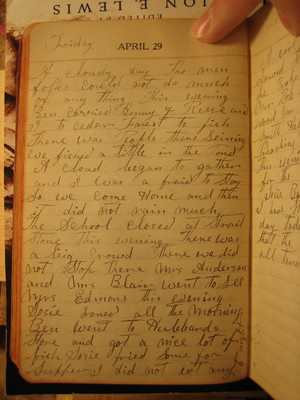 ION E. LEWIS
EDITED BY
Thursday
APRIL 29
A cloudy day The men
folks could not do much
of any thing This evening
Ben carried Benny & Reece and
I to cedar to fish
There was People there Seining
we fished a little in the
A cloud began to gather
and I was a fraid to Stay
So we come Home and then
it did not rain much
The School closed at
Stone this evening There was
a big crowd There we did
not Stop There Mrs Anderson
and Mrs Blair went to See
Mrs Edmons this evening
Josie Ironed all the Morning
Ben went to Hubbands
Store and got a nice lot of
fish Josie fried some for
Supper I did not eat any